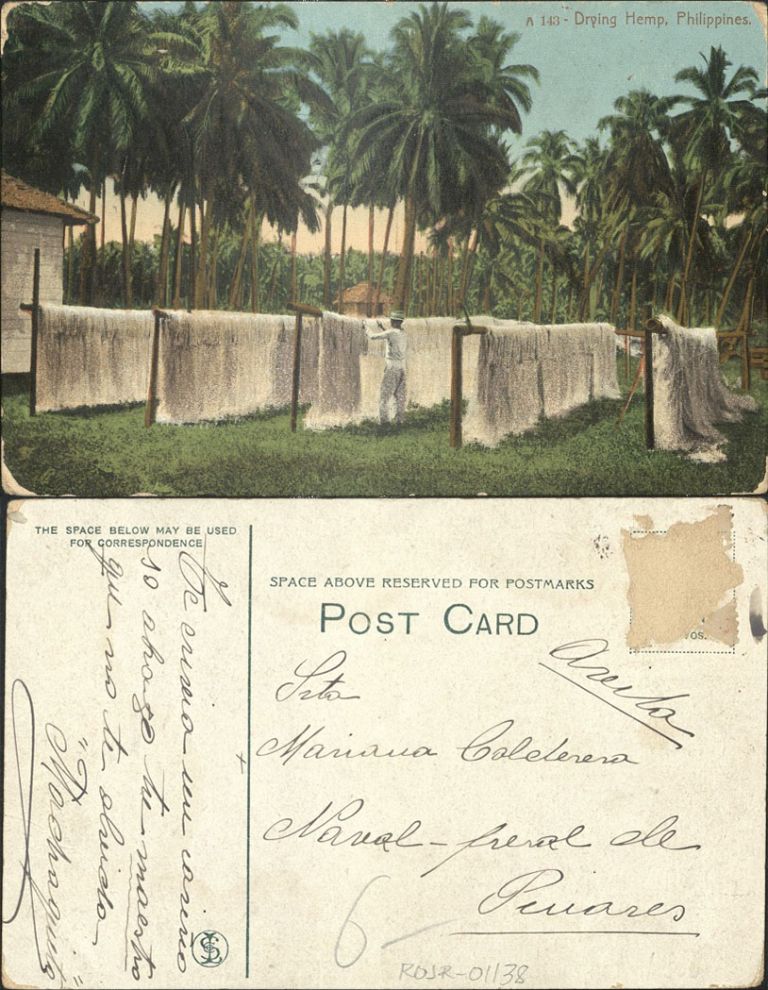 A 143 - Drying Hemp, Philippines.
THE SPACE BELOW MAY BE USED
FOR CORRESPONDENCE
Te envia un cariño
so abrazo tu maestro
que no te olvida
"Machaquito"
SPACE ABOVE RESERVED FOR POSTMARKS
POST CARD
Srta
Mariana Calderera
Naval-peral de
Pinares
6
ROJR-01138